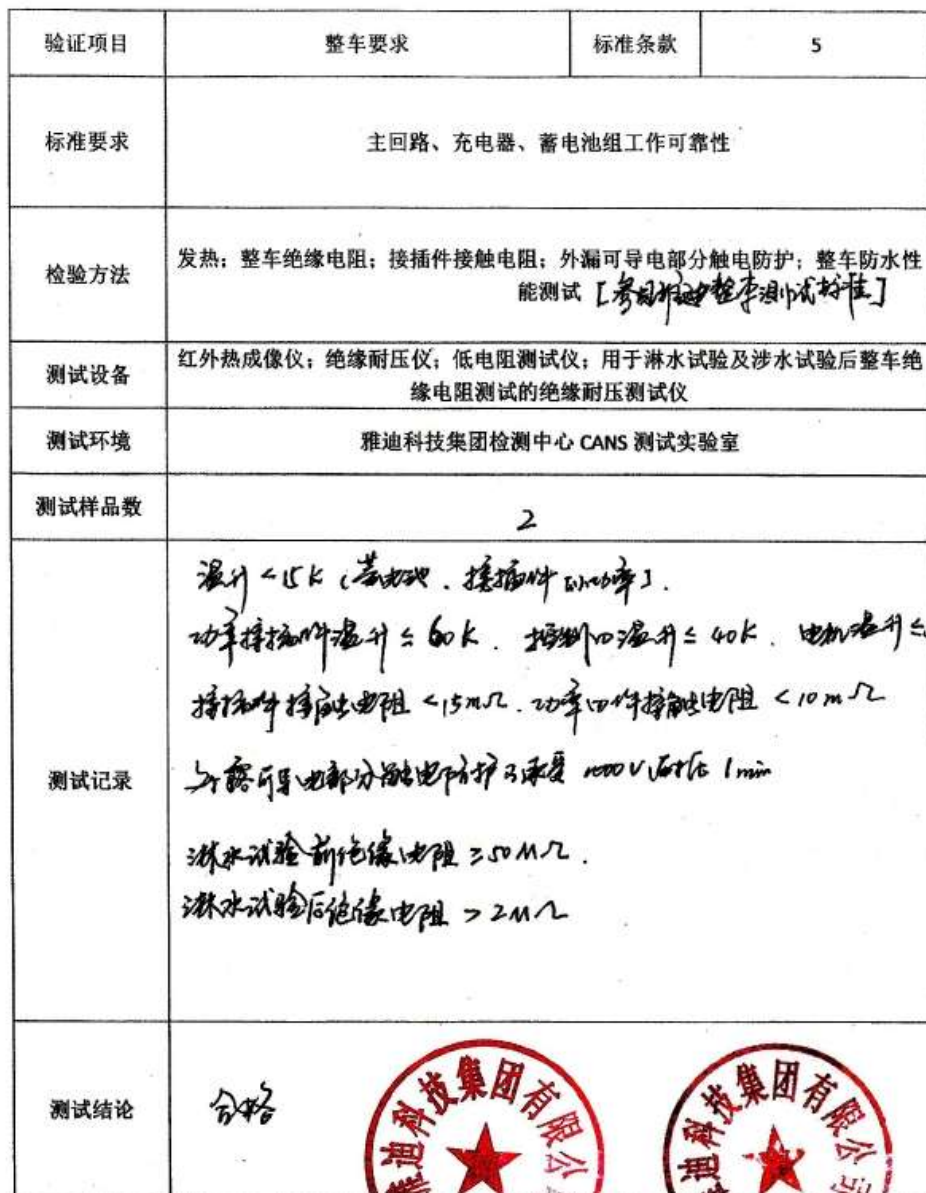 验证项目 整车要求 标准条款 5
标准要求 主回路、充电器、蓄电池组工作可靠性
检验方法 发热；整车绝缘电阻；接插件接触电阻；外漏可导电部分触电防护；整车防水性
能测试 [参照雅迪整车测试标准]
测试设备 红外热成像仪；绝缘耐压仪；低电阻测试仪；用于淋水试验及涉水试验后整车绝
缘电阻测试的绝缘耐压测试仪
测试环境 雅迪科技集团检测中心 CANS 测试实验室
测试样品数 2
温升 <15K（蓄电池、接插件
功率接插件温升 ≤ 60K、控制 温升 ≤ 40K、电机温升 ≤
接插件接触电阻 <15mΩ、功率 件接触电阻 <10mΩ
测试记录
外露可导电部分触电防护可承受 1000V 耐压 1min
淋水试验前绝缘电阻 ≥50MΩ.
淋水试验后绝缘电阻 >2MΩ
测试结论 合格
雅迪科技集团有限公司
雅迪科技集团有限公司